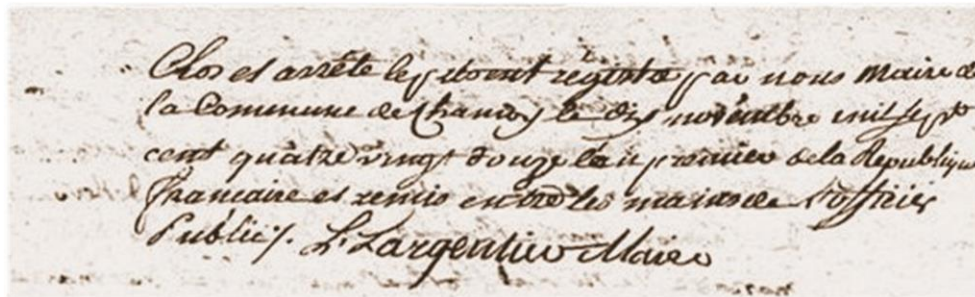 Clos et arrêté le présent registre par nous Maire de
la Commune de Chamoy le dix novembre mil sept
cent quatre vingt douze l'an premier de la Republique
francaise et remis entre les mains de l'officier
Public. L. Largentier Maire